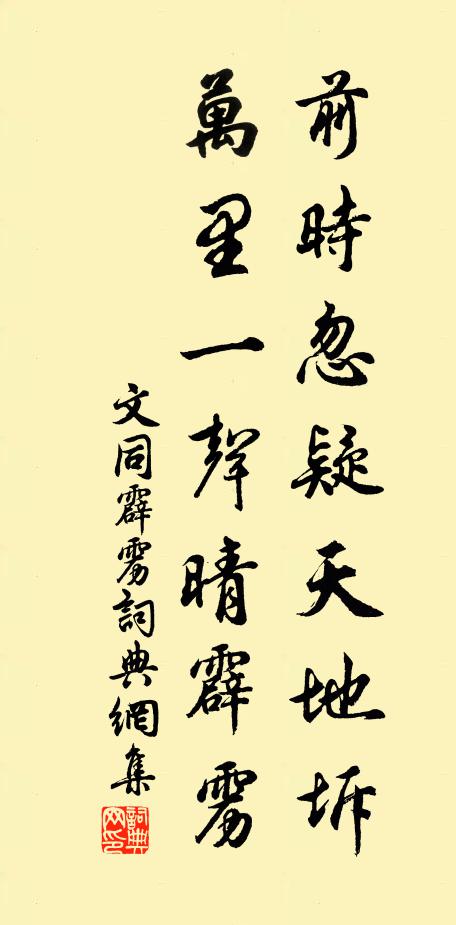 前時忽疑天地坼
萬里一聲晴霹雳
文同霹雳詞典網集
詞典网印